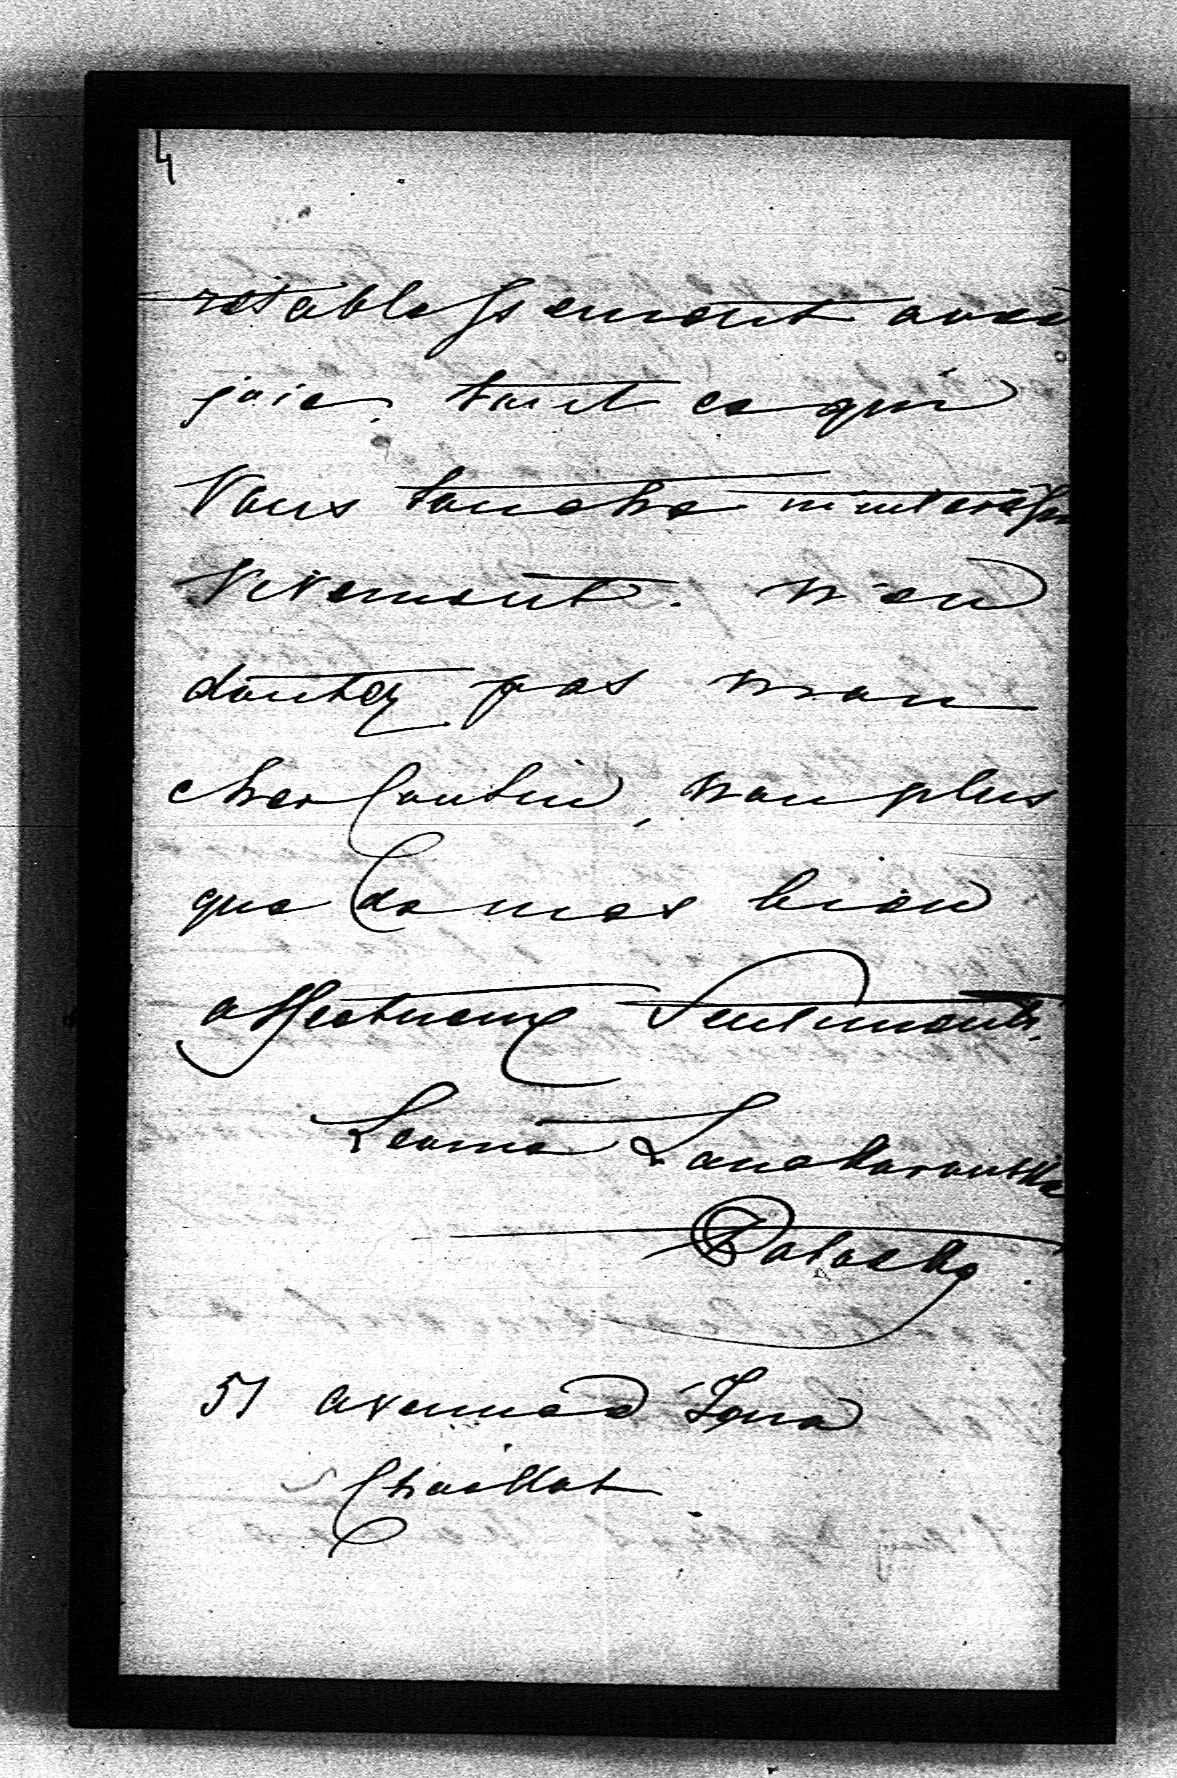 4
retablessement avec
joie, tout ce qui
Vous touche m'interesse
Vivement. N'en
doutez pas mon
cher Cousin, non plus
que de mes bien
affectueux Sentiments.
Leonie Lanckoronska
Potocka.
51 avenue d'Iena
Chaillot